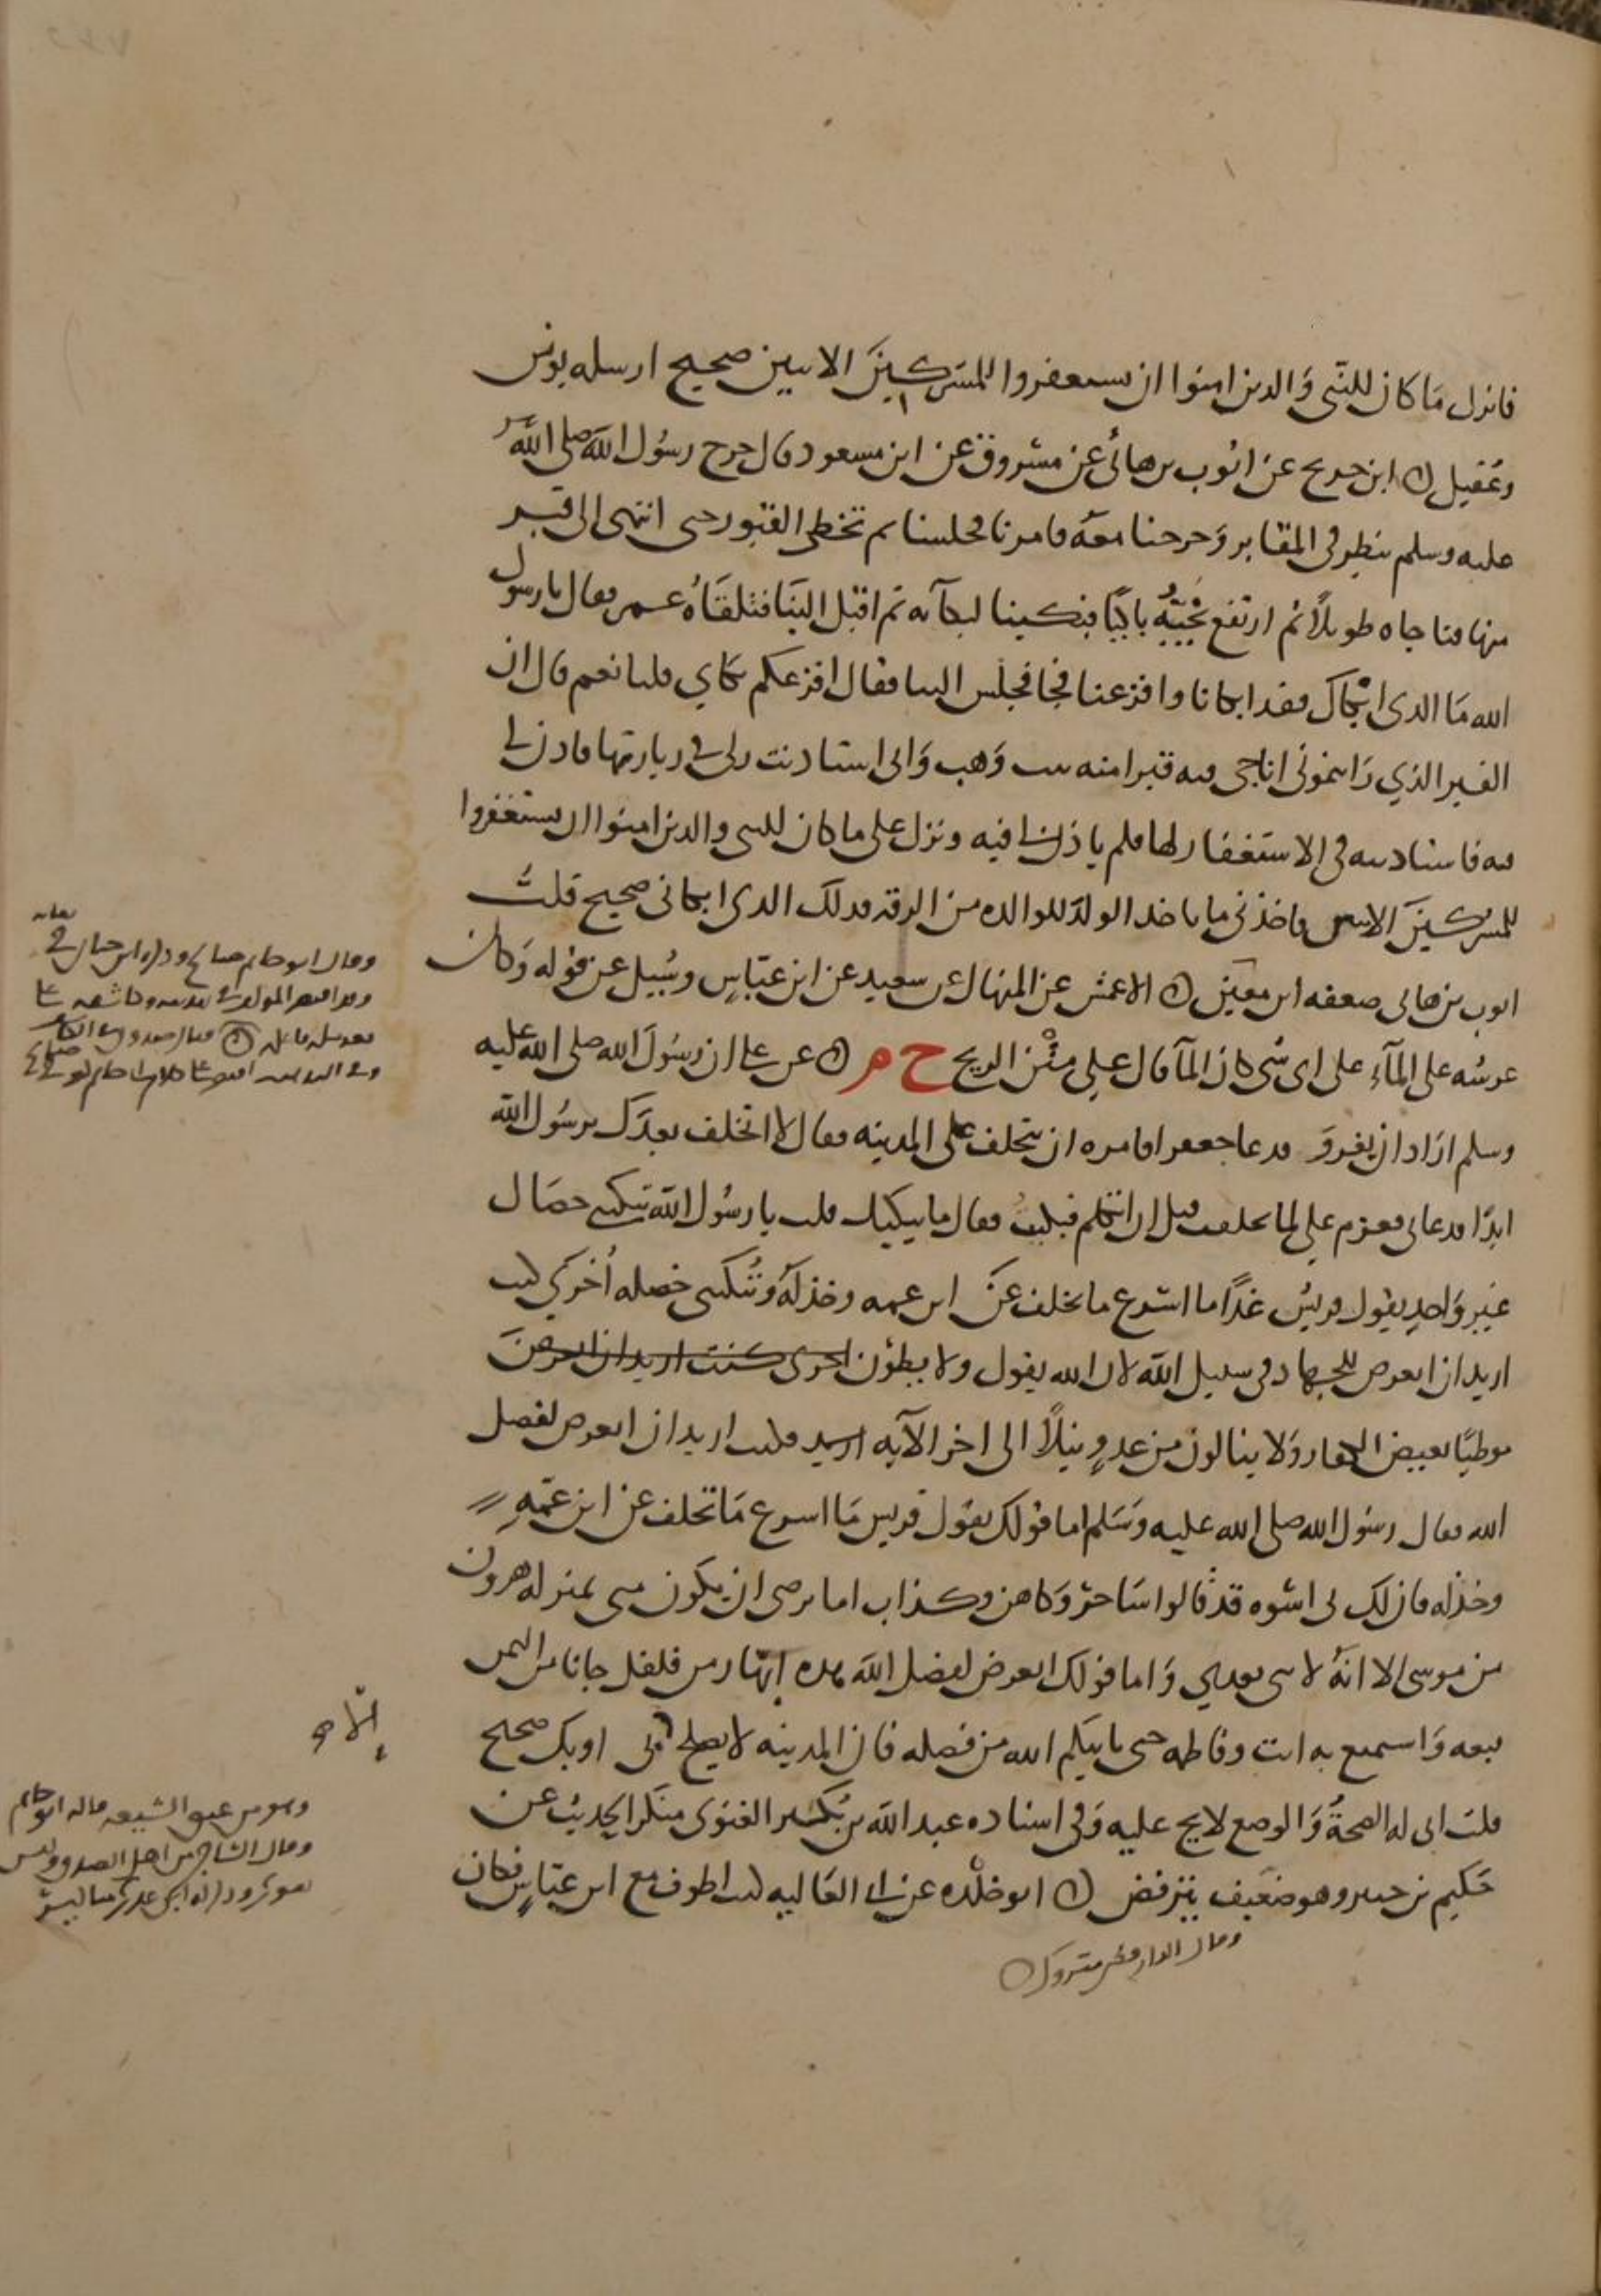 فانزل مَا كان للنَّبى وَالدىن امنوا ان ىسىعفروا للمشركينَ الاىىىن صحيح ارسله يونس
وعُقيل ۞ ابن جرىج عن ايُوب بن هانىُ عن مسْروق عن ابن مسعود قال خرج رسُول اللهَ صلى اللهَ
عليه وسلم ىنظر فى المقابر وَخرحنا معَه فامرنا فجلسنا ىم تخطى القبور حىى انتهى الى قبر
منها فناجاه طويلاً ثم ارتفع نحِيبُهُ باكيًا فبكينا لبكآىه ثم اقبَل الينَا فتلقاهُ عمر فقال يا رسول
الله مَا الذى ابكاك فقد ابكانا وافزعنا فجا فجلس الىىا فقال افزعكم بكاي قلىا نعم قال ان
القبر الذي رَاىتمونى اناجى فىه قبر امنه بىت وَهب وَانى استاذنت ربى فى زيارتها فاذن لى
فىه فاستاذىىه فى الاستغفار لها فلم ياذن لى فيه ونزل على ما كان للنىى والذىن امنوا ان يستغفروا
للمشركينَ الاىىىن فاخذنى ما ىاخذ الولدَ للوالده من الرقه فذلك الذى ابكانى صحيح قلتُ
اىوب بن هانى ضعفه ابن معين ۞ الاعمش عن المنهال عن سعيد عن ابن عبّاسٍ وسُيىل عن قوله وَكان
عرشُه على المآءِ على اى شى كان المآ قال على متْن الريح ح م ۞ عن على ان رسُولَ الله صلى الله عليه
وسلم ارَاد ان يغزوَ فدعا جعفرا فامره ان يتخلف على المدينه فقال لا اتخلف بعدَك يرسُول الله
ابدًا فدعانى فعزم على لما تخلفت قبل ان اتكلم فبكيت فقال ما يبكيك قلت يا رسُول اللهَ تبكىنى خصَال
غير وَاحدٍ ىقول قريش غدًا ما اسْرع ما تخلف عَن ابن عمه وخذلهُ وتُبكىنى خصله اُخرى كنت
اريد ان اتعرض للجهاد فى سبيل اللهَ لان الله يقول ولا يطؤن
موطيًا ىغيض الكفار وَلا ينالون من عدوٍ نيلاً الى اخر الآيه فكنت اريد ان اتعرض لفضل
الله فقال رسُول الله صلى الله عليه وسَلم اما قولك ىقول قريش مَا اسرع مَا تخلف عن ابن عمّهِ
وخذله فان لك بى اسْوه قد قالوا سَاحرٌ وَكاهن وكذاب اما ترضى ان يكون منى بمنزله هرون
من موسى الا انهُ لا نبى بعدي وَاما قولك اتعرض لفضل اللهَ هذه ابهَار من فلفل جانا من اليمن
فبعه وَاستمتع به انت وفاطمه حىى ياتيكم الله من فضله فان المدينه لا ىصلح الا بى او بك صحيح
قلت انى له الصحةُ وَالوضع لايح عليه وَفى اسناده عبد اللهَ بن بُكير الغنوى منكر الحديث عن
حَكيم بن جبير وهو ضعَيف يترفض ۞ ابو خلْده عن ابى العَاليه كنت اطوف مع ابن عبّاسٍ فكان
وقال الدارقطنى متروك ۞
وقال ابو حاتم صالح وذكره ابن حبان فى ثقاته
إلّا صح
وهو من عىق الشيعه قاله ابو حاتم
وقال الساجى من اهل الصدق وليس
بقوى وذكر له ابن عدى مناكير